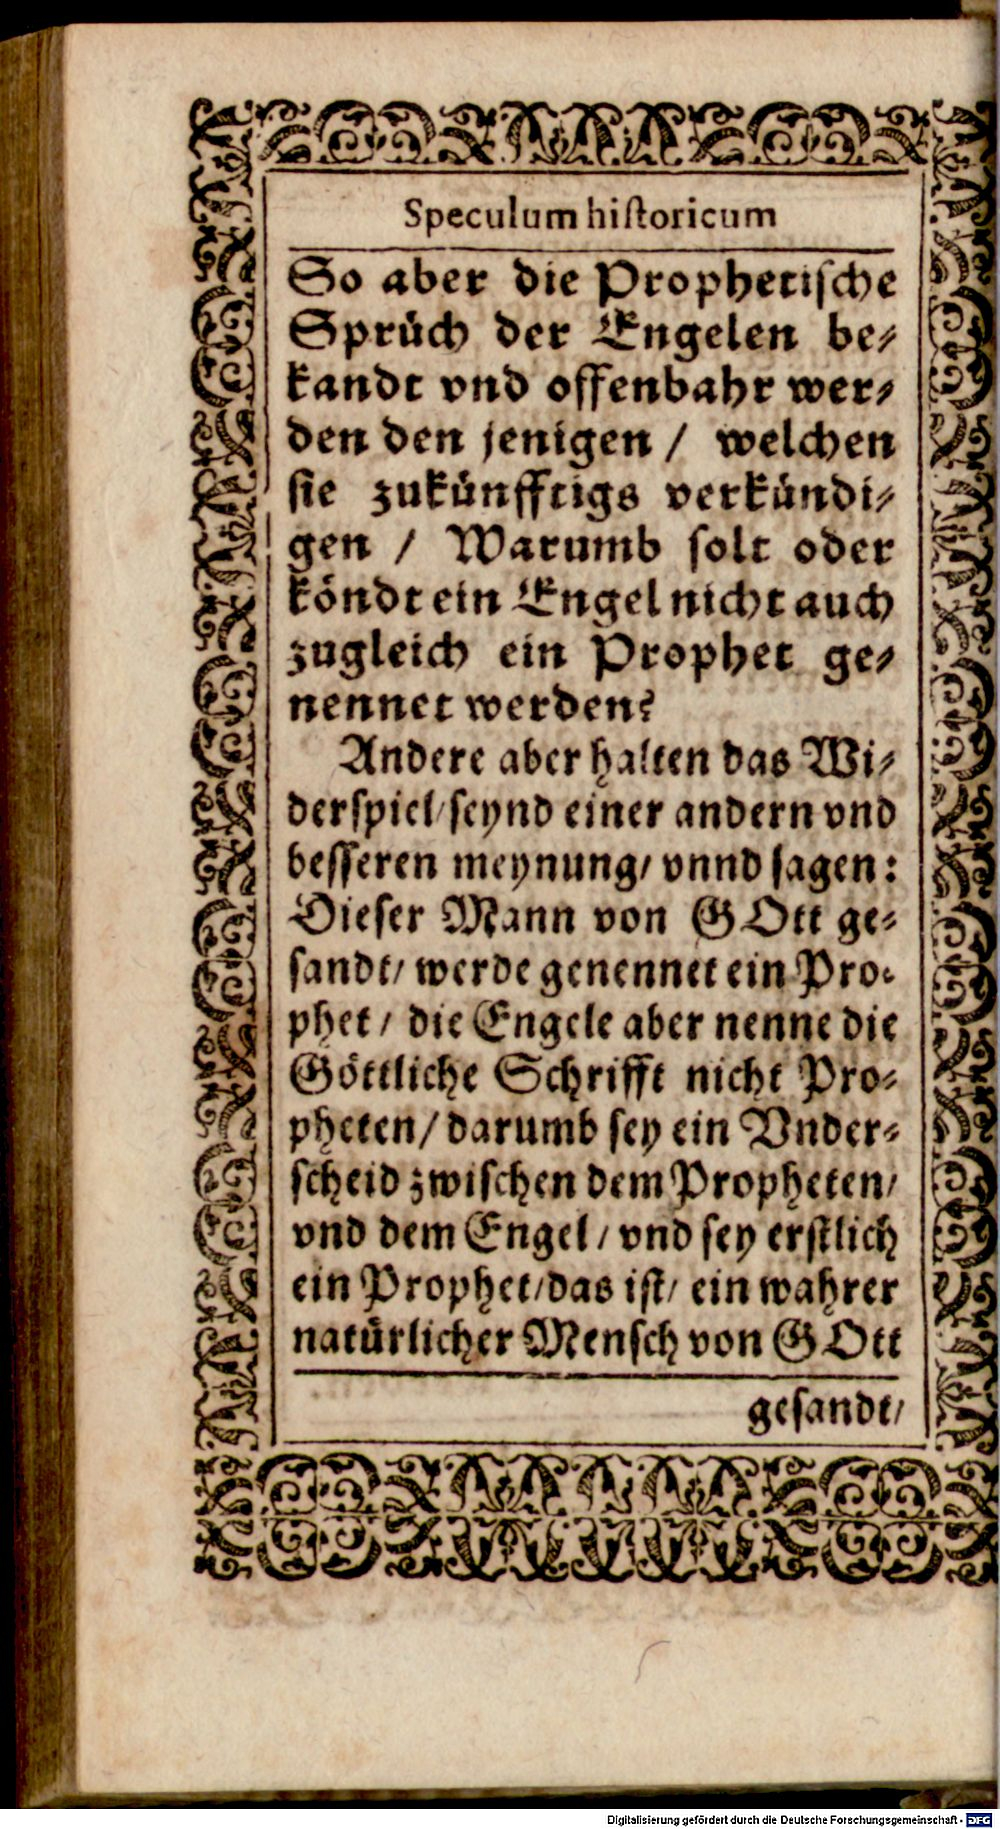 Speculum hiſtoricum
So aber die Prophetiſche
Sprüch der Engelen be⸗
kandt vnd offenbahr wer⸗
den den jenigen / welchen
ſie zukünfftigs verkündi⸗
gen / Warumb ſolt oder
köndt ein Engel nicht auch
zugleich ein Prophet ge⸗
nennet werden?
Andere aber halten das Wi⸗
derſpiel/ ſeynd einer andern vnd
beſſeren meynung/ vnnd ſagen:
Dieſer Mann von GOtt ge⸗
ſandt/ werde genennet ein Pro⸗
phet / die Engele aber nenne die
Göttliche Schrifft nicht Pro⸗
pheten/ darumb ſey ein Vnder⸗
ſcheid zwiſchen dem Propheten/
vnd dem Engel / vnd ſey erſtlich
ein Prophet/das iſt/ ein wahrer
natürlicher Menſch von GOtt
geſandt/
Digitalisierung gefördert durch die Deutsche Forschungsgemeinschaft - DFG